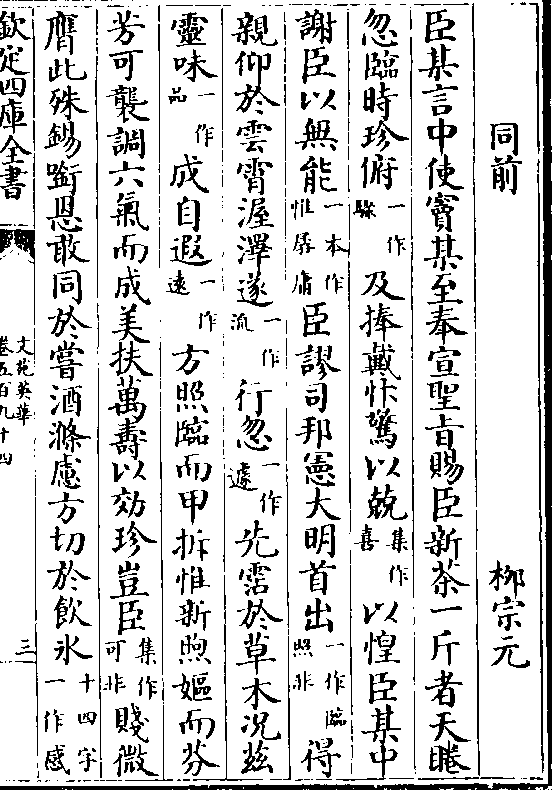 同前　柳宗元
臣某言中使竇某至奉宣聖旨賜臣新茶一斤者天睠
忽臨時珍俯一作驟及捧戴忭驚以兢集作喜以惶臣某中
謝臣以無能一本作惟孱庸臣謬司邦憲大明首出一作臨照非得
親仰於雲霄渥澤遂一作流行忽一作遽先霑於草木況兹
靈味一作品成自遐一作遠方照臨而甲拆惟新煦嫗而芬
芳可襲調六氣而成美扶萬壽以効珍豈臣集作可非賤微
膺此殊錫銜恩敢同於嘗酒滌慮方切於飲氷十四字一作感
欽定四庫全書
文苑英華
卷五百九十四
三